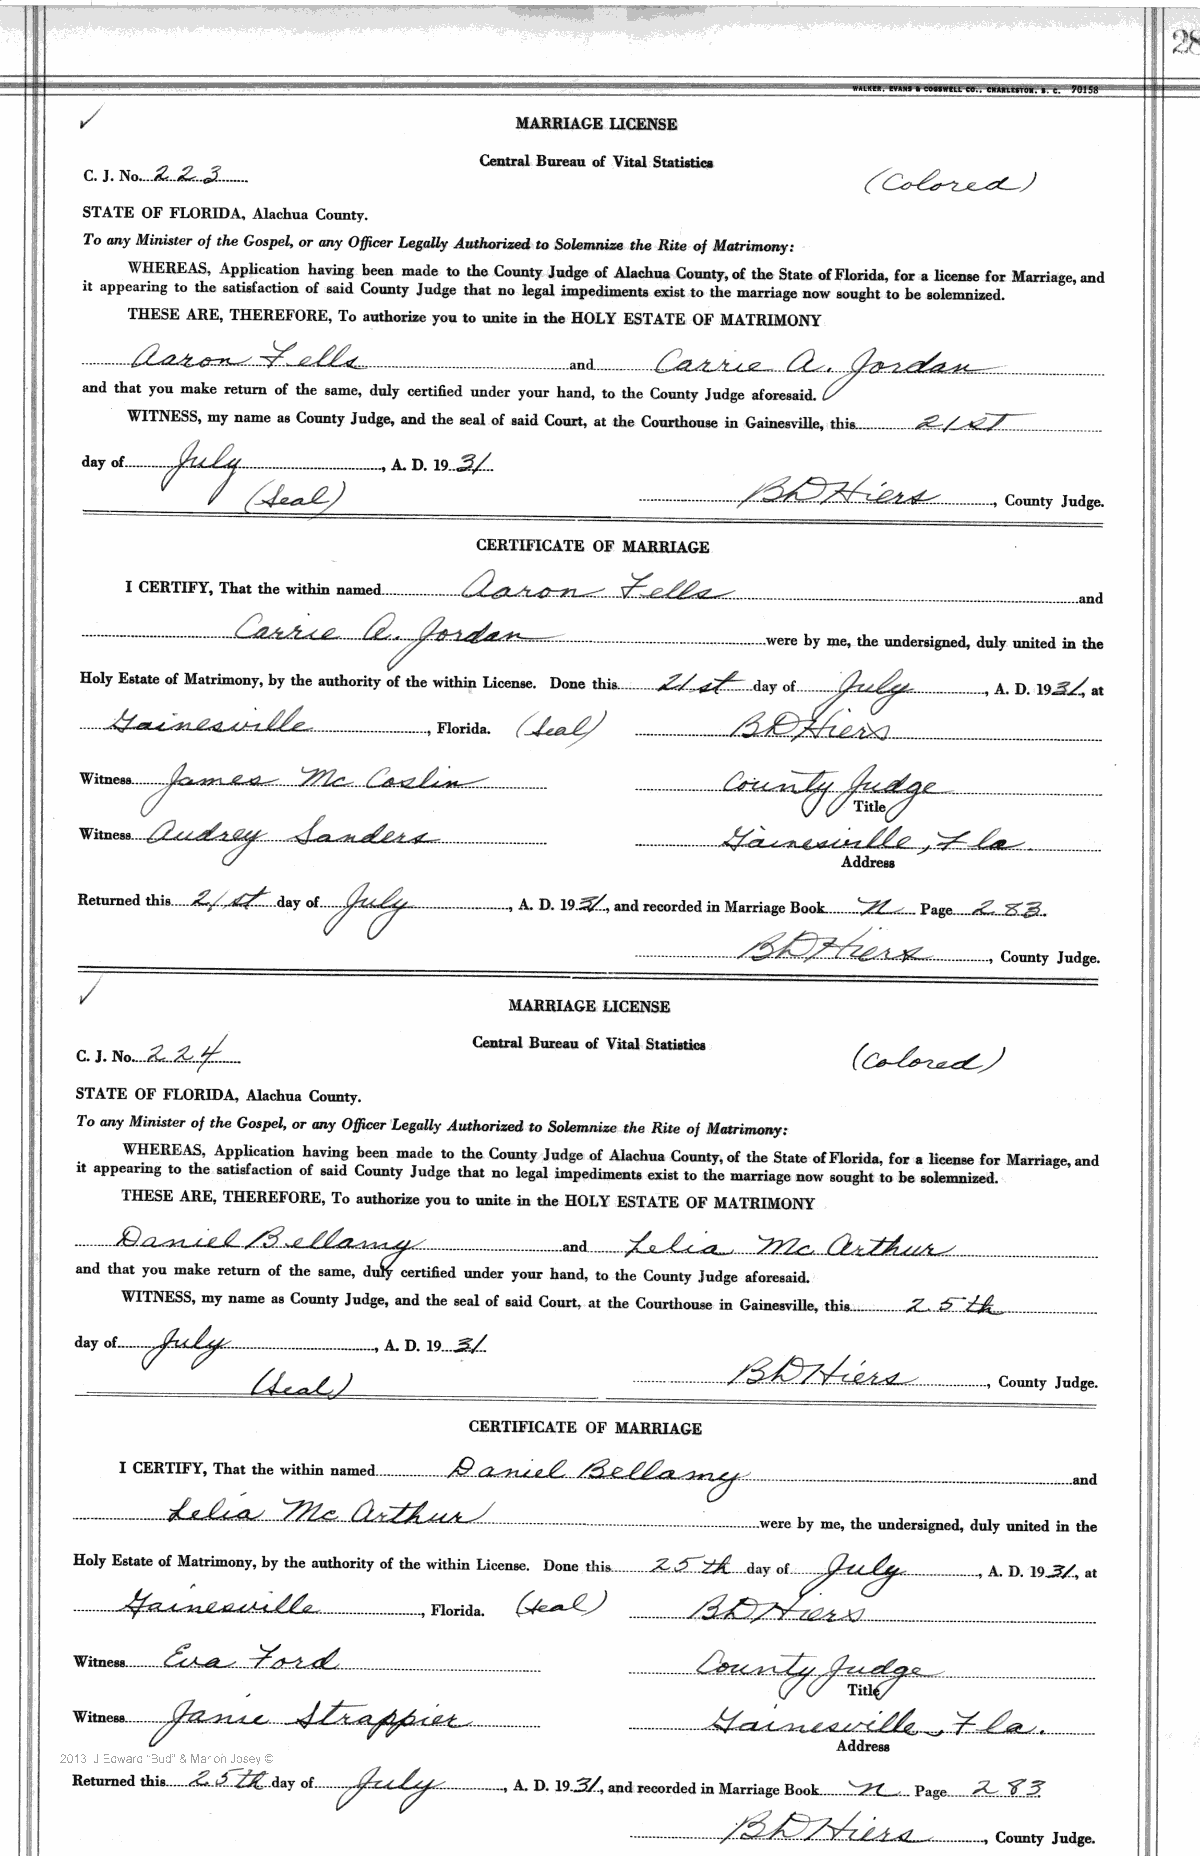 28
WALKER, EVANS & COGSWELL CO., CHARLESTON, S. C. 70158
✓
MARRIAGE LICENSE
Central Bureau of Vital Statistics
C. J. No. 223
(Colored)
STATE OF FLORIDA, Alachua County.
To any Minister of the Gospel, or any Officer Legally Authorized to Solemnize the Rite of Matrimony:
WHEREAS, Application having been made to the County Judge of Alachua County, of the State of Florida, for a license for Marriage, and
it appearing to the satisfaction of said County Judge that no legal impediments exist to the marriage now sought to be solemnized.
THESE ARE, THEREFORE, To authorize you to unite in the HOLY ESTATE OF MATRIMONY
Aaron Fells and Carrie A. Jordan
and that you make return of the same, duly certified under your hand, to the County Judge aforesaid.
WITNESS, my name as County Judge, and the seal of said Court, at the Courthouse in Gainesville, this 21st
day of July, A. D. 1931
(Seal) BD Hiers, County Judge.
CERTIFICATE OF MARRIAGE
I CERTIFY, That the within named Aaron Fells and
Carrie A. Jordan were by me, the undersigned, duly united in the
Holy Estate of Matrimony, by the authority of the within License. Done this 21st day of July, A. D. 1931, at
Gainesville, Florida. (Seal) BD Hiers
Witness James Mc Coslin County Judge
Title
Witness Audrey Sanders Gainesville, Fla.
Address
Returned this 21st day of July, A. D. 1931, and recorded in Marriage Book N Page 283.
BD Hiers, County Judge.
✓
MARRIAGE LICENSE
Central Bureau of Vital Statistics
C. J. No. 224
(Colored)
STATE OF FLORIDA, Alachua County.
To any Minister of the Gospel, or any Officer Legally Authorized to Solemnize the Rite of Matrimony:
WHEREAS, Application having been made to the County Judge of Alachua County, of the State of Florida, for a license for Marriage, and
it appearing to the satisfaction of said County Judge that no legal impediments exist to the marriage now sought to be solemnized.
THESE ARE, THEREFORE, To authorize you to unite in the HOLY ESTATE OF MATRIMONY
Daniel Bellamy and Lelia Mc Arthur
and that you make return of the same, duly certified under your hand, to the County Judge aforesaid.
WITNESS, my name as County Judge, and the seal of said Court, at the Courthouse in Gainesville, this 25th
day of July, A. D. 1931
(Seal) BD Hiers, County Judge.
CERTIFICATE OF MARRIAGE
I CERTIFY, That the within named Daniel Bellamy and
Lelia Mc Arthur were by me, the undersigned, duly united in the
Holy Estate of Matrimony, by the authority of the within License. Done this 25th day of July, A. D. 1931, at
Gainesville, Florida. (Seal) BD Hiers
Witness Eva Ford County Judge
Title
Witness Janie Strappier Gainesville, Fla.
Address
2013 J Edward "Bud" & Marion Josey ©
Returned this 25th day of July, A. D. 1931, and recorded in Marriage Book N Page 283
BD Hiers, County Judge.